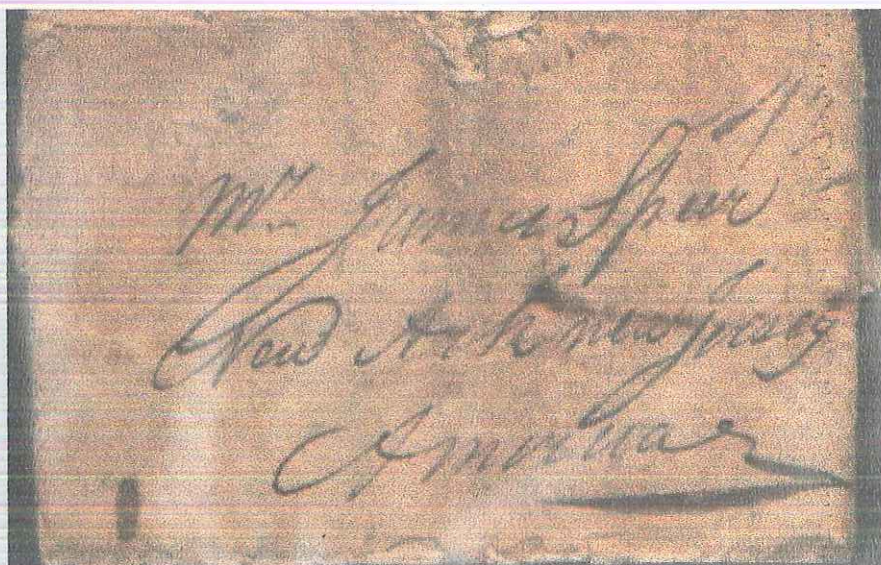 Mr. James Speer
New Ark new Jersey
America